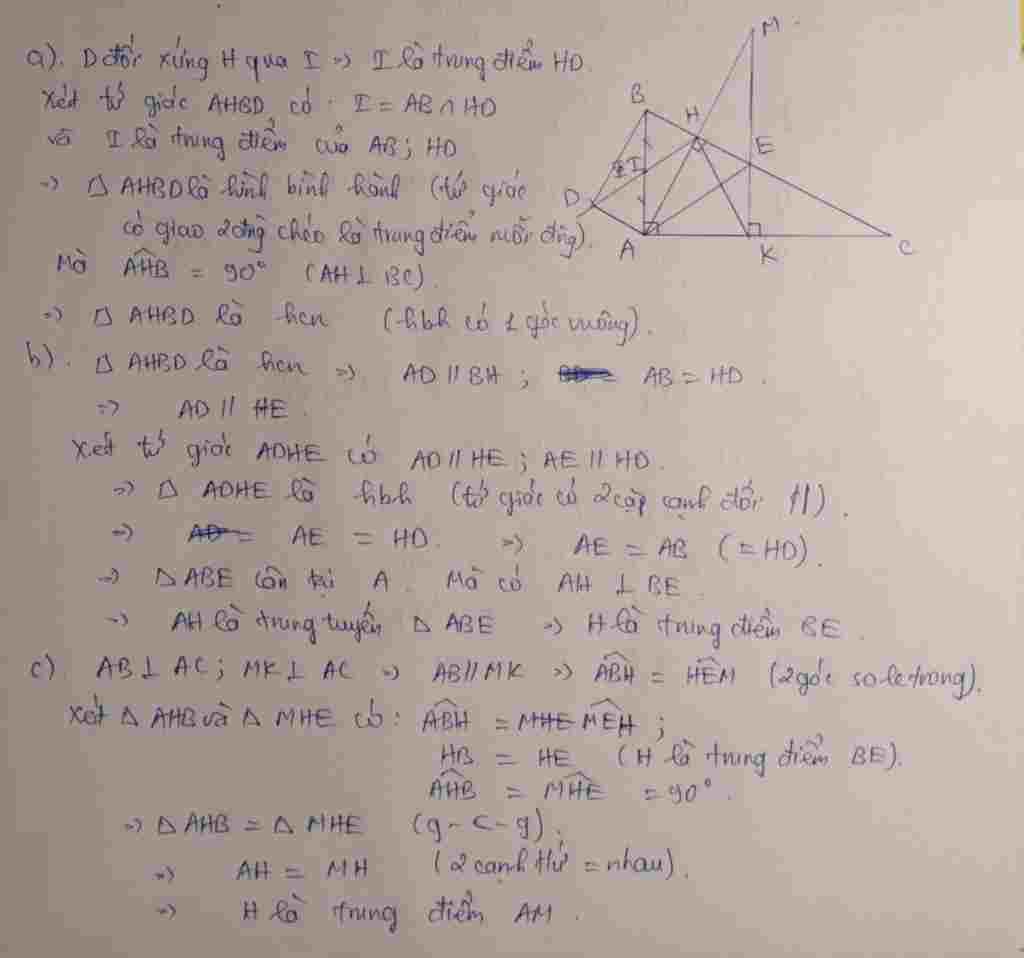 a). D đối xứng H qua I => I là trung điểm HD.
Xét tứ giác AHBD có : I = AB ∩ HD
và I là trung điểm của AB ; HD
=> ▱ AHBD là hình bình hành (tứ giác
có giao 2 đng chéo là trung điểm mỗi đng).
Mà AHB = 90° (AH ⊥ BC).
=> ▱ AHBD là hcn (hbh có 1 góc vuông).
b). ▱ AHBD là hcn => AD // BH ; AB = HD.
=> AD // HE.
Xét tứ giác ADHE có AD // HE ; AE // HD.
=> ▱ ADHE là hbh (tứ giác có 2 cặp cạnh đối //).
=> AD = AE = HD. => AE = AB (= HD).
=> Δ ABE cân tại A. Mà có AH ⊥ BE
=> AH là trung tuyến Δ ABE => H là trung điểm BE.
c) AB ⊥ AC ; MK ⊥ AC => AB // MK => ABH = HEM (2 góc so le trong).
Xét Δ AHB và Δ MHE có : ABH = MHE MEH ;
HB = HE (H là trung điểm BE).
AHB = MHE = 90°.
=> Δ AHB = Δ MHE (g-c-g).
=> AH = MH (2 cạnh tứ = nhau).
=> H là trung điểm AM.
M
B
H
E
I
D
A
K
C